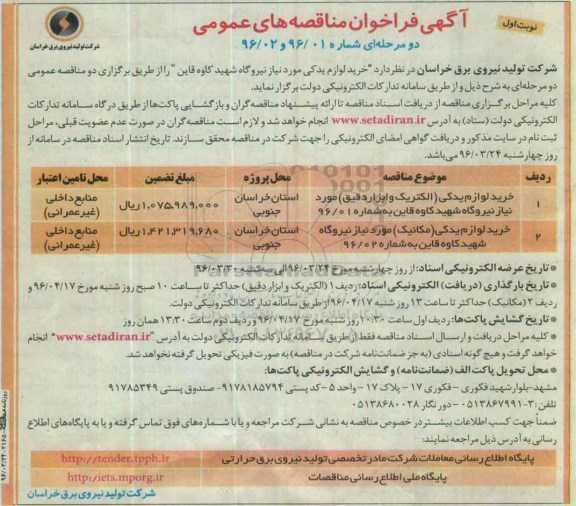 نوبت اول
آگهی فراخوان مناقصه‌های عمومی
دو مرحله‌ای شماره ۹۶/۰۱ و ۹۶/۰۲
شرکت تولید نیروی برق خراسان
شرکت تولید نیروی برق خراسان در نظر دارد "خرید لوازم یدکی مورد نیاز نیروگاه شهید کاوه قاین" را از طریق برگزاری دو مناقصه عمومی
دو مرحله‌ای به شرح ذیل و از طریق سامانه تدارکات الکترونیکی دولت برگزار نماید.
کلیه مراحل برگزاری مناقصه از دریافت اسناد مناقصه تا ارائه پیشنهاد مناقصه‌گران و بازگشایی پاکت‌ها از طریق درگاه سامانه تدارکات
الکترونیکی دولت (ستاد) به آدرس www.setadiran.ir انجام خواهد شد و لازم است مناقصه‌گران در صورت عدم عضویت قبلی، مراحل
ثبت نام در سایت مذکور و دریافت گواهی امضای الکترونیکی را جهت شرکت در مناقصه محقق سازند. تاریخ انتشار اسناد مناقصه در سامانه از
روز چهارشنبه ۹۶/۰۳/۲۴ می‌باشد.
ردیف موضوع مناقصه محل پروژه مبلغ تضمین محل تامین اعتبار
۱ خرید لوازم یدکی (الکتریک و ابزار دقیق) مورد نیاز نیروگاه شهید کاوه قاین به شماره ۹۶/۰۱ استان خراسان جنوبی ۱,۰۷۵,۹۸۹,۰۰۰ ریال منابع داخلی (غیرعمرانی)
۲ خرید لوازم یدکی (مکانیک) مورد نیاز نیروگاه شهید کاوه قاین به شماره ۹۶/۰۲ استان خراسان جنوبی ۱,۴۲۱,۳۱۹,۶۸۰ ریال منابع داخلی (غیرعمرانی)
* تاریخ عرضه الکترونیکی اسناد: از روز چهارشنبه مورخ ۹۶/۰۳/۲۴ الی سه‌شنبه ۹۶/۰۳/۳۰
* تاریخ بارگذاری (دریافت) الکترونیکی اسناد: ردیف ۱ (الکتریک و ابزار دقیق) حداکثر تا ساعت ۱۰ صبح روز شنبه مورخ ۹۶/۰۴/۱۷ و
ردیف ۲ (مکانیک) حداکثر تا ساعت ۱۳ روز شنبه ۹۶/۰۴/۱۷ از طریق سامانه تدارکات الکترونیکی دولت.
* تاریخ گشایش پاکت‌ها: ردیف اول ساعت ۱۰:۳۰ روز شنبه مورخ ۹۶/۰۴/۱۷ و ردیف دوم ساعت ۱۳:۳۰ همان روز
* کلیه مراحل دریافت و ارسال اسناد مناقصه فقط از طریق سامانه تدارکات الکترونیکی دولت به آدرس "www.setadiran.ir" انجام
خواهد گرفت و هیچ گونه اسنادی (به جز ضمانت‌نامه شرکت در مناقصه) به صورت فیزیکی تحویل گرفته نخواهد شد.
* محل تحویل پاکت الف (ضمانت‌نامه) و گشایش الکترونیکی پاکت‌ها:
مشهد- بلوار شهید فکوری - فکوری ۱۷ - پلاک ۱۷ - واحد ۵ - کد پستی ۹۱۷۸۱۸۵۷۹۴ - صندوق پستی ۹۱۷۸۵۳۴۹
تلفن: ۳-۰۵۱۳۸۶۷۹۹۱ - دورنگار ۰۵۱۳۸۶۸۰۰۲۸
ضمناً جهت کسب اطلاعات بیشتر در خصوص مناقصه به نشانی شرکت مراجعه و یا با شماره‌های فوق تماس گرفته و یا به پایگاه‌های اطلاع
رسانی به آدرس ذیل مراجعه نمایند:
پایگاه اطلاع رسانی معاملات شرکت مادر تخصصی تولید نیروی برق حرارتی http://tender.tpph.ir
پایگاه ملی اطلاع رسانی مناقصات http://iets.mporg.ir
شرکت تولید نیروی برق خراسان